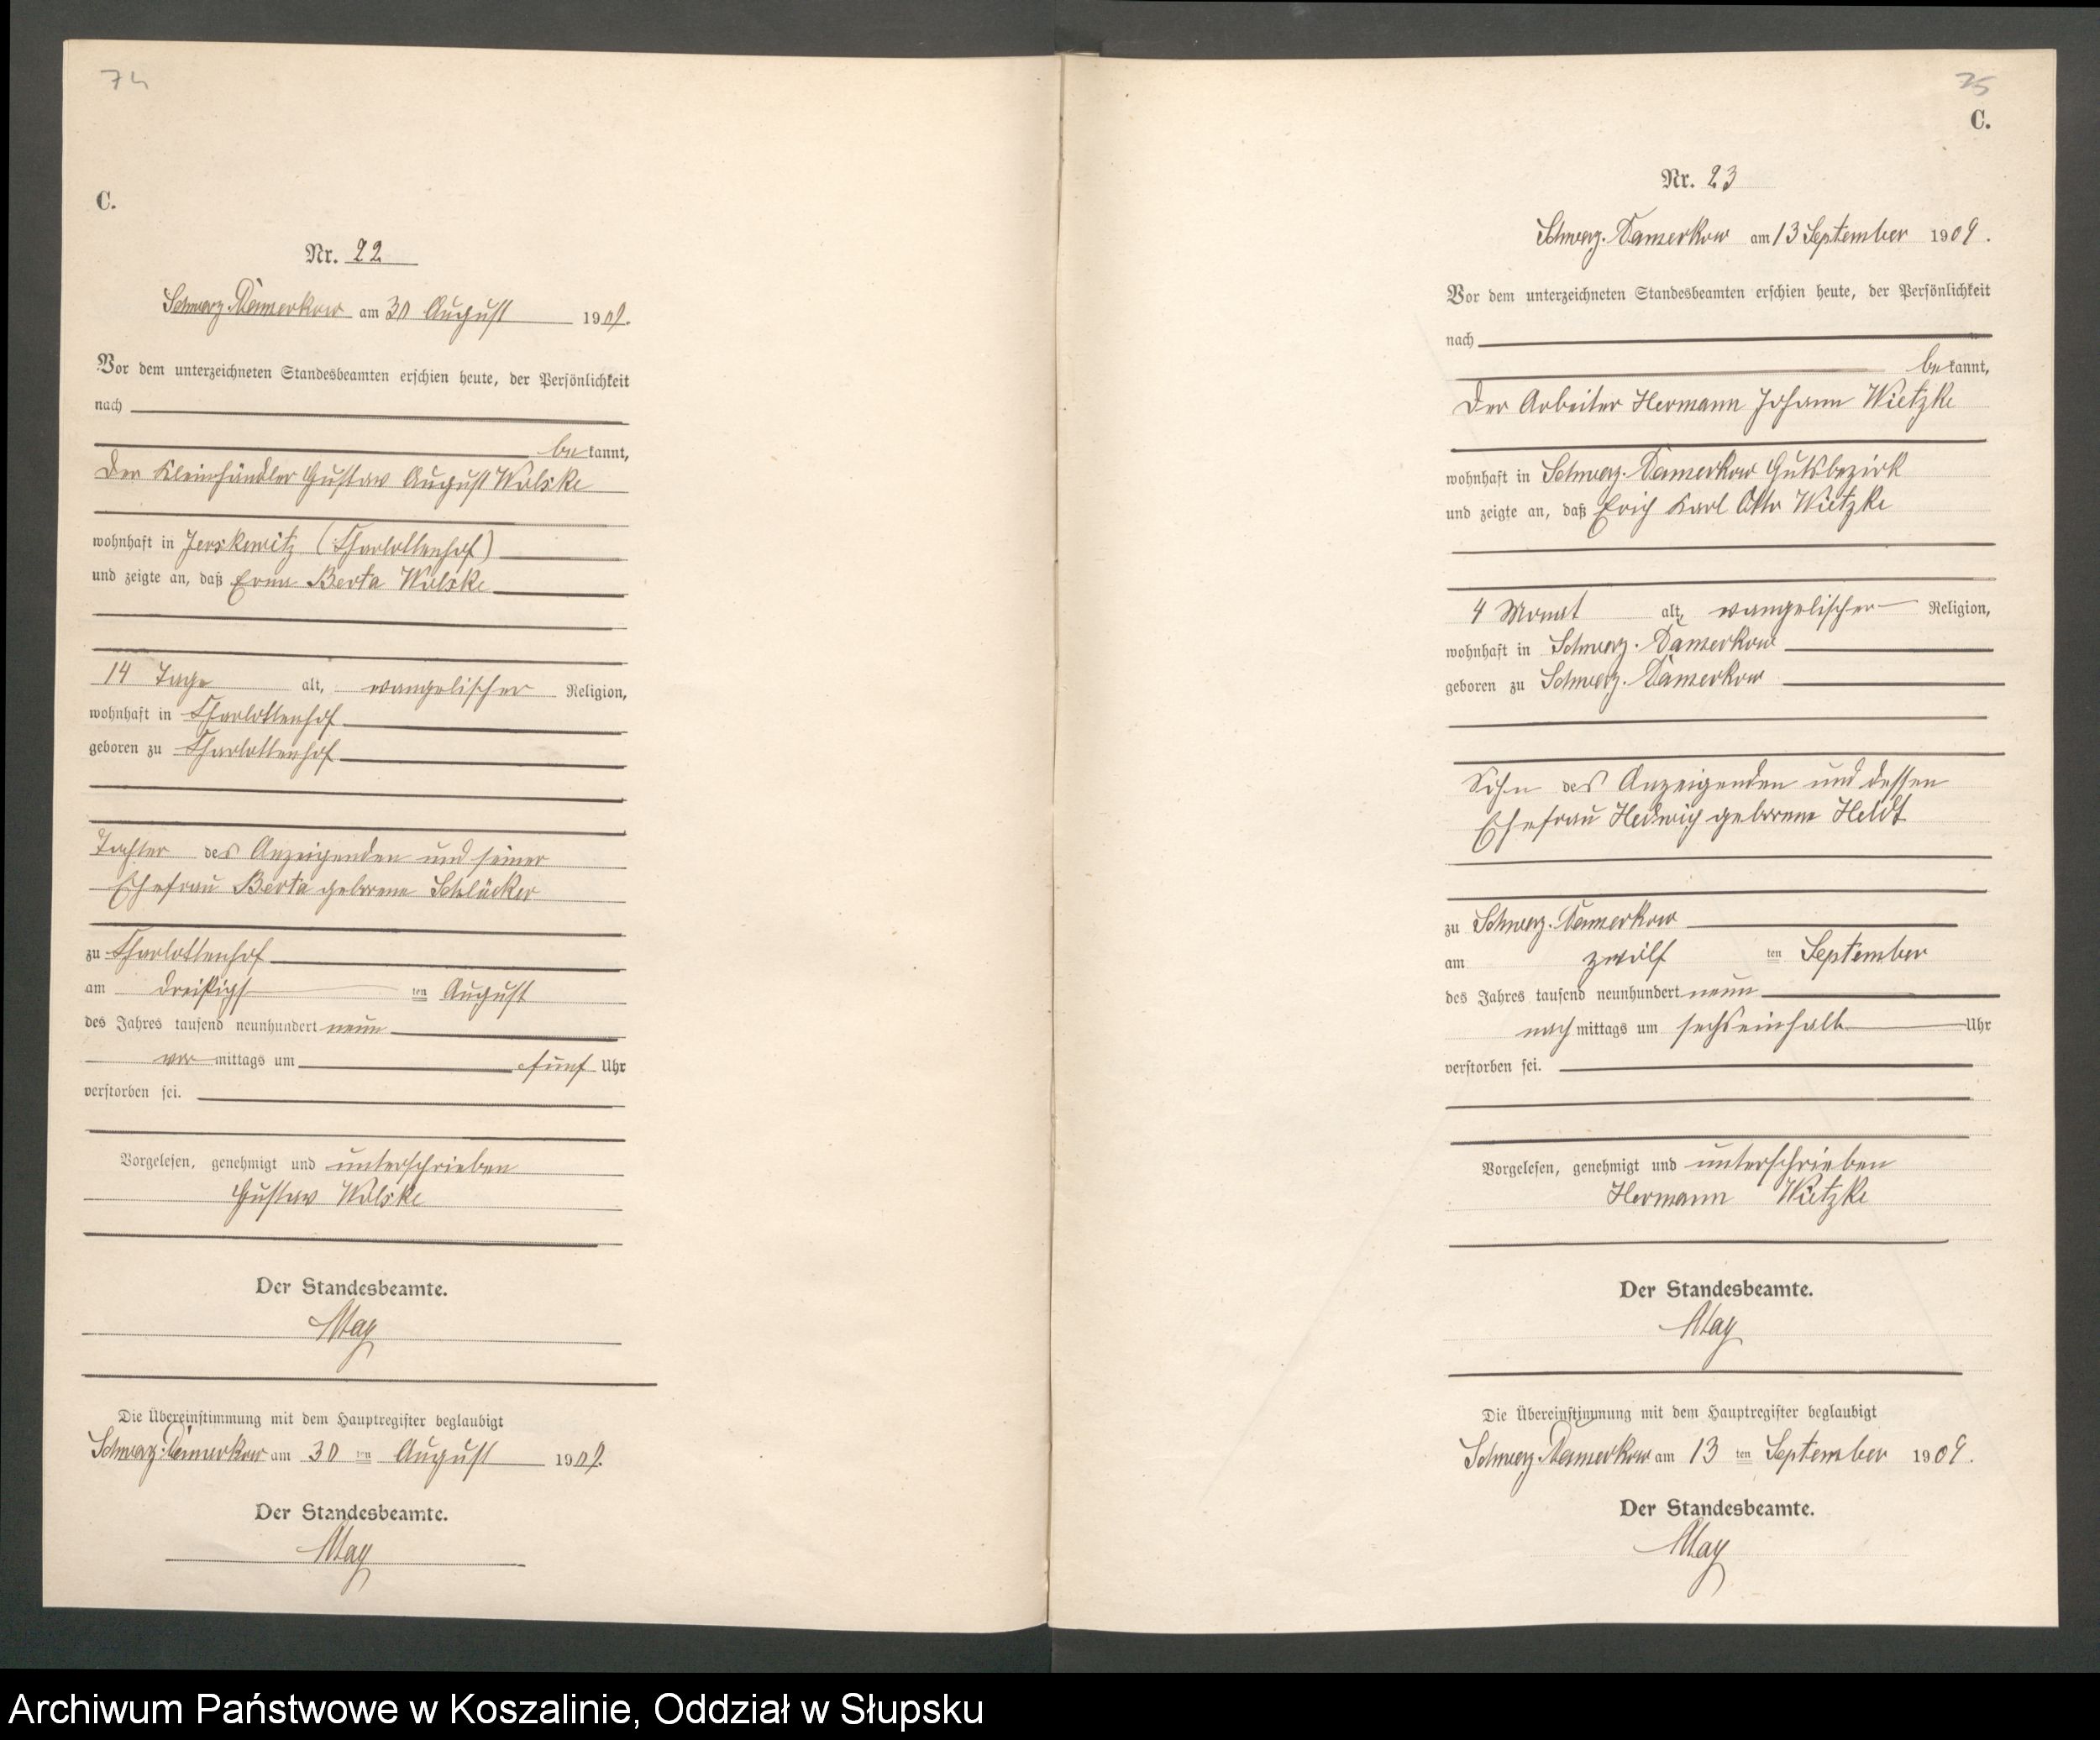 74
C.
Nr. 22
Schwarz-Damerkow am 30 August 1909.
Vor dem unterzeichneten Standesbeamten erschien heute, der Persönlichkeit
nach
bekannt,
Der Kleinhändler Gustav August Wolske
wohnhaft in Jerskewitz (Charlottenhof)
und zeigte an, daß Erna Berta Wolske
14 Tage alt, evangelischer Religion,
wohnhaft in Charlottenhof
geboren zu Charlottenhof
Tochter des Anzeigenden und seiner
Ehefrau Berta geborene Schlücker
zu Charlottenhof
am dreißigsten August
des Jahres tausend neunhundert neun
vor mittags um fünf Uhr
verstorben sei.
Vorgelesen, genehmigt und unterschrieben
Gustav Wolske
Der Standesbeamte.
May
Die Übereinstimmung mit dem Hauptregister beglaubigt
Schwarz-Damerkow am 30 ten August 1909.
Der Standesbeamte.
May
75
C.
Nr. 23
Schwarz-Damerkow am 13 September 1909.
Vor dem unterzeichneten Standesbeamten erschien heute, der Persönlichkeit
nach
bekannt,
Der Arbeiter Hermann Johann Wietzke
wohnhaft in Schwarz-Damerkow Gutsbezirk
und zeigte an, daß Erich Karl Otto Wietzke
4 Monat alt, evangelischer Religion,
wohnhaft in Schwarz-Damerkow
geboren zu Schwarz-Damerkow
Sohn des Anzeigenden und dessen
Ehefrau Hedwig geborene Heldt
zu Schwarz-Damerkow
am zwölf ten September
des Jahres tausend neunhundert neun
nach mittags um sechseinhalb Uhr
verstorben sei.
Vorgelesen, genehmigt und unterschrieben
Hermann Wietzke
Der Standesbeamte.
May
Die Übereinstimmung mit dem Hauptregister beglaubigt
Schwarz-Damerkow am 13 ten September 1909.
Der Standesbeamte.
May
Archiwum Państwowe w Koszalinie, Oddział w Słupsku